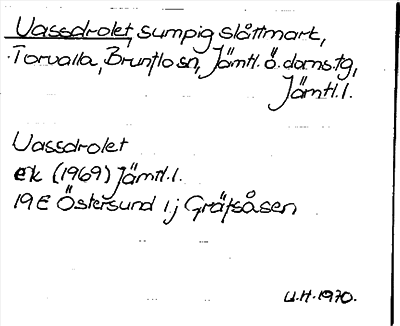 Vassdrolet, sumpig slåttmark,
Torvalla, Brunflo sn, Jämtl. ö. doms.tg,
Jämtl.l.
Vassdrolet
ek (1969) Jämtl.l.
19E Östersund 1j Gräfsåsen
U.H. 1970.